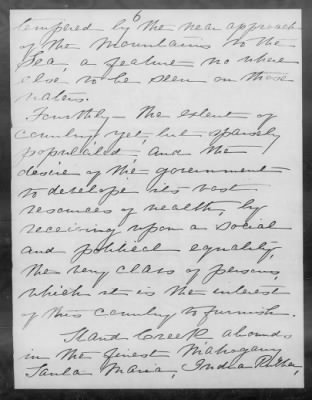 6
tempered by the near approach
of the mountains to the
Sea, a feature no where
else to be seen on these
waters.
Fourthly - the extent of
country yet, but sparsely
populated, and the
desire of the government
to develope its vast
resources of wealth, by
receiving upon a social
and political equality,
the very class of persons,
which it is the interest
of this country to furnish.
Stand Creek abounds
in the finest Mahogany
Santa Maria, India Rubber,